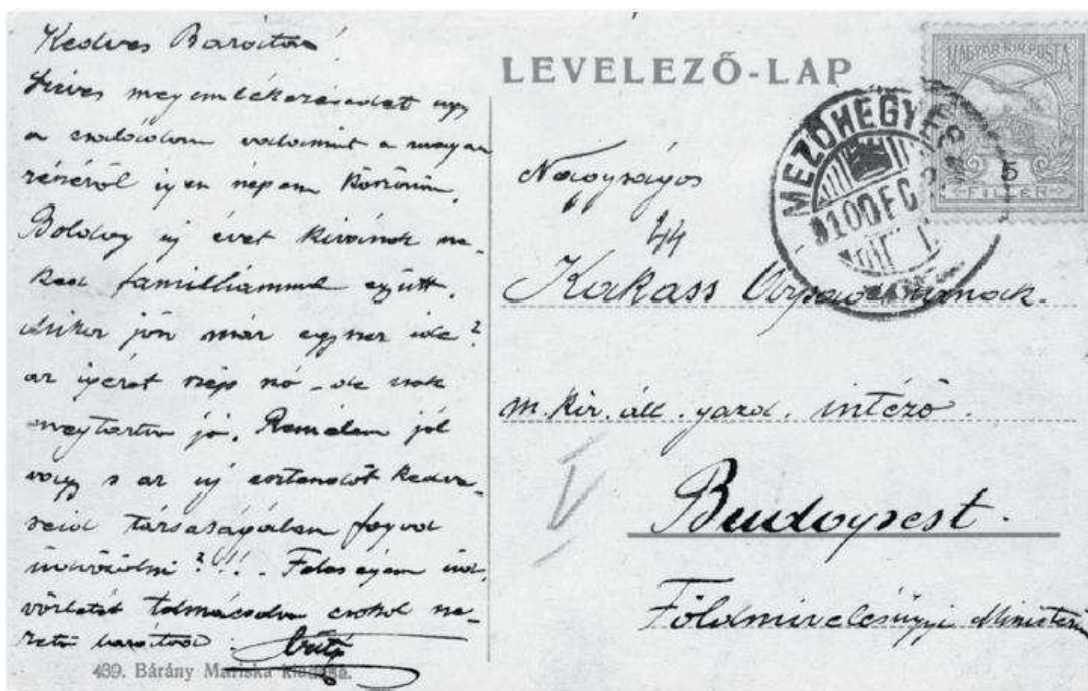 Kedves Barátom!
Szíves megemlékezésedet ugy
a családom valamint a magam
részéről igen szépen köszönöm.
Boldog uj évet kivánok ne-
ked familliámmal együtt.
Mikor jön már egyszer ide?
az igéret szép szó - de csak
megtartva jó. Remélem jól
vagy s az uj esztendőt kedve-
seid társaságában fogod
üdvözölni?!!! Feleségem üd-
vözletét tolmácsolva csókol sze-
rető barátod:
439. Bárány Mariska kiadása.
LEVELEZŐ-LAP
MAGYAR KIR. POSTA
5
FILLÉR
MEZŐHEGYES
910 DEC
Nagyságos
Kakass urnak.
m. kir. áll. gazd. intéző.
V
Budapest.
Földmivelésügyi Ministerium